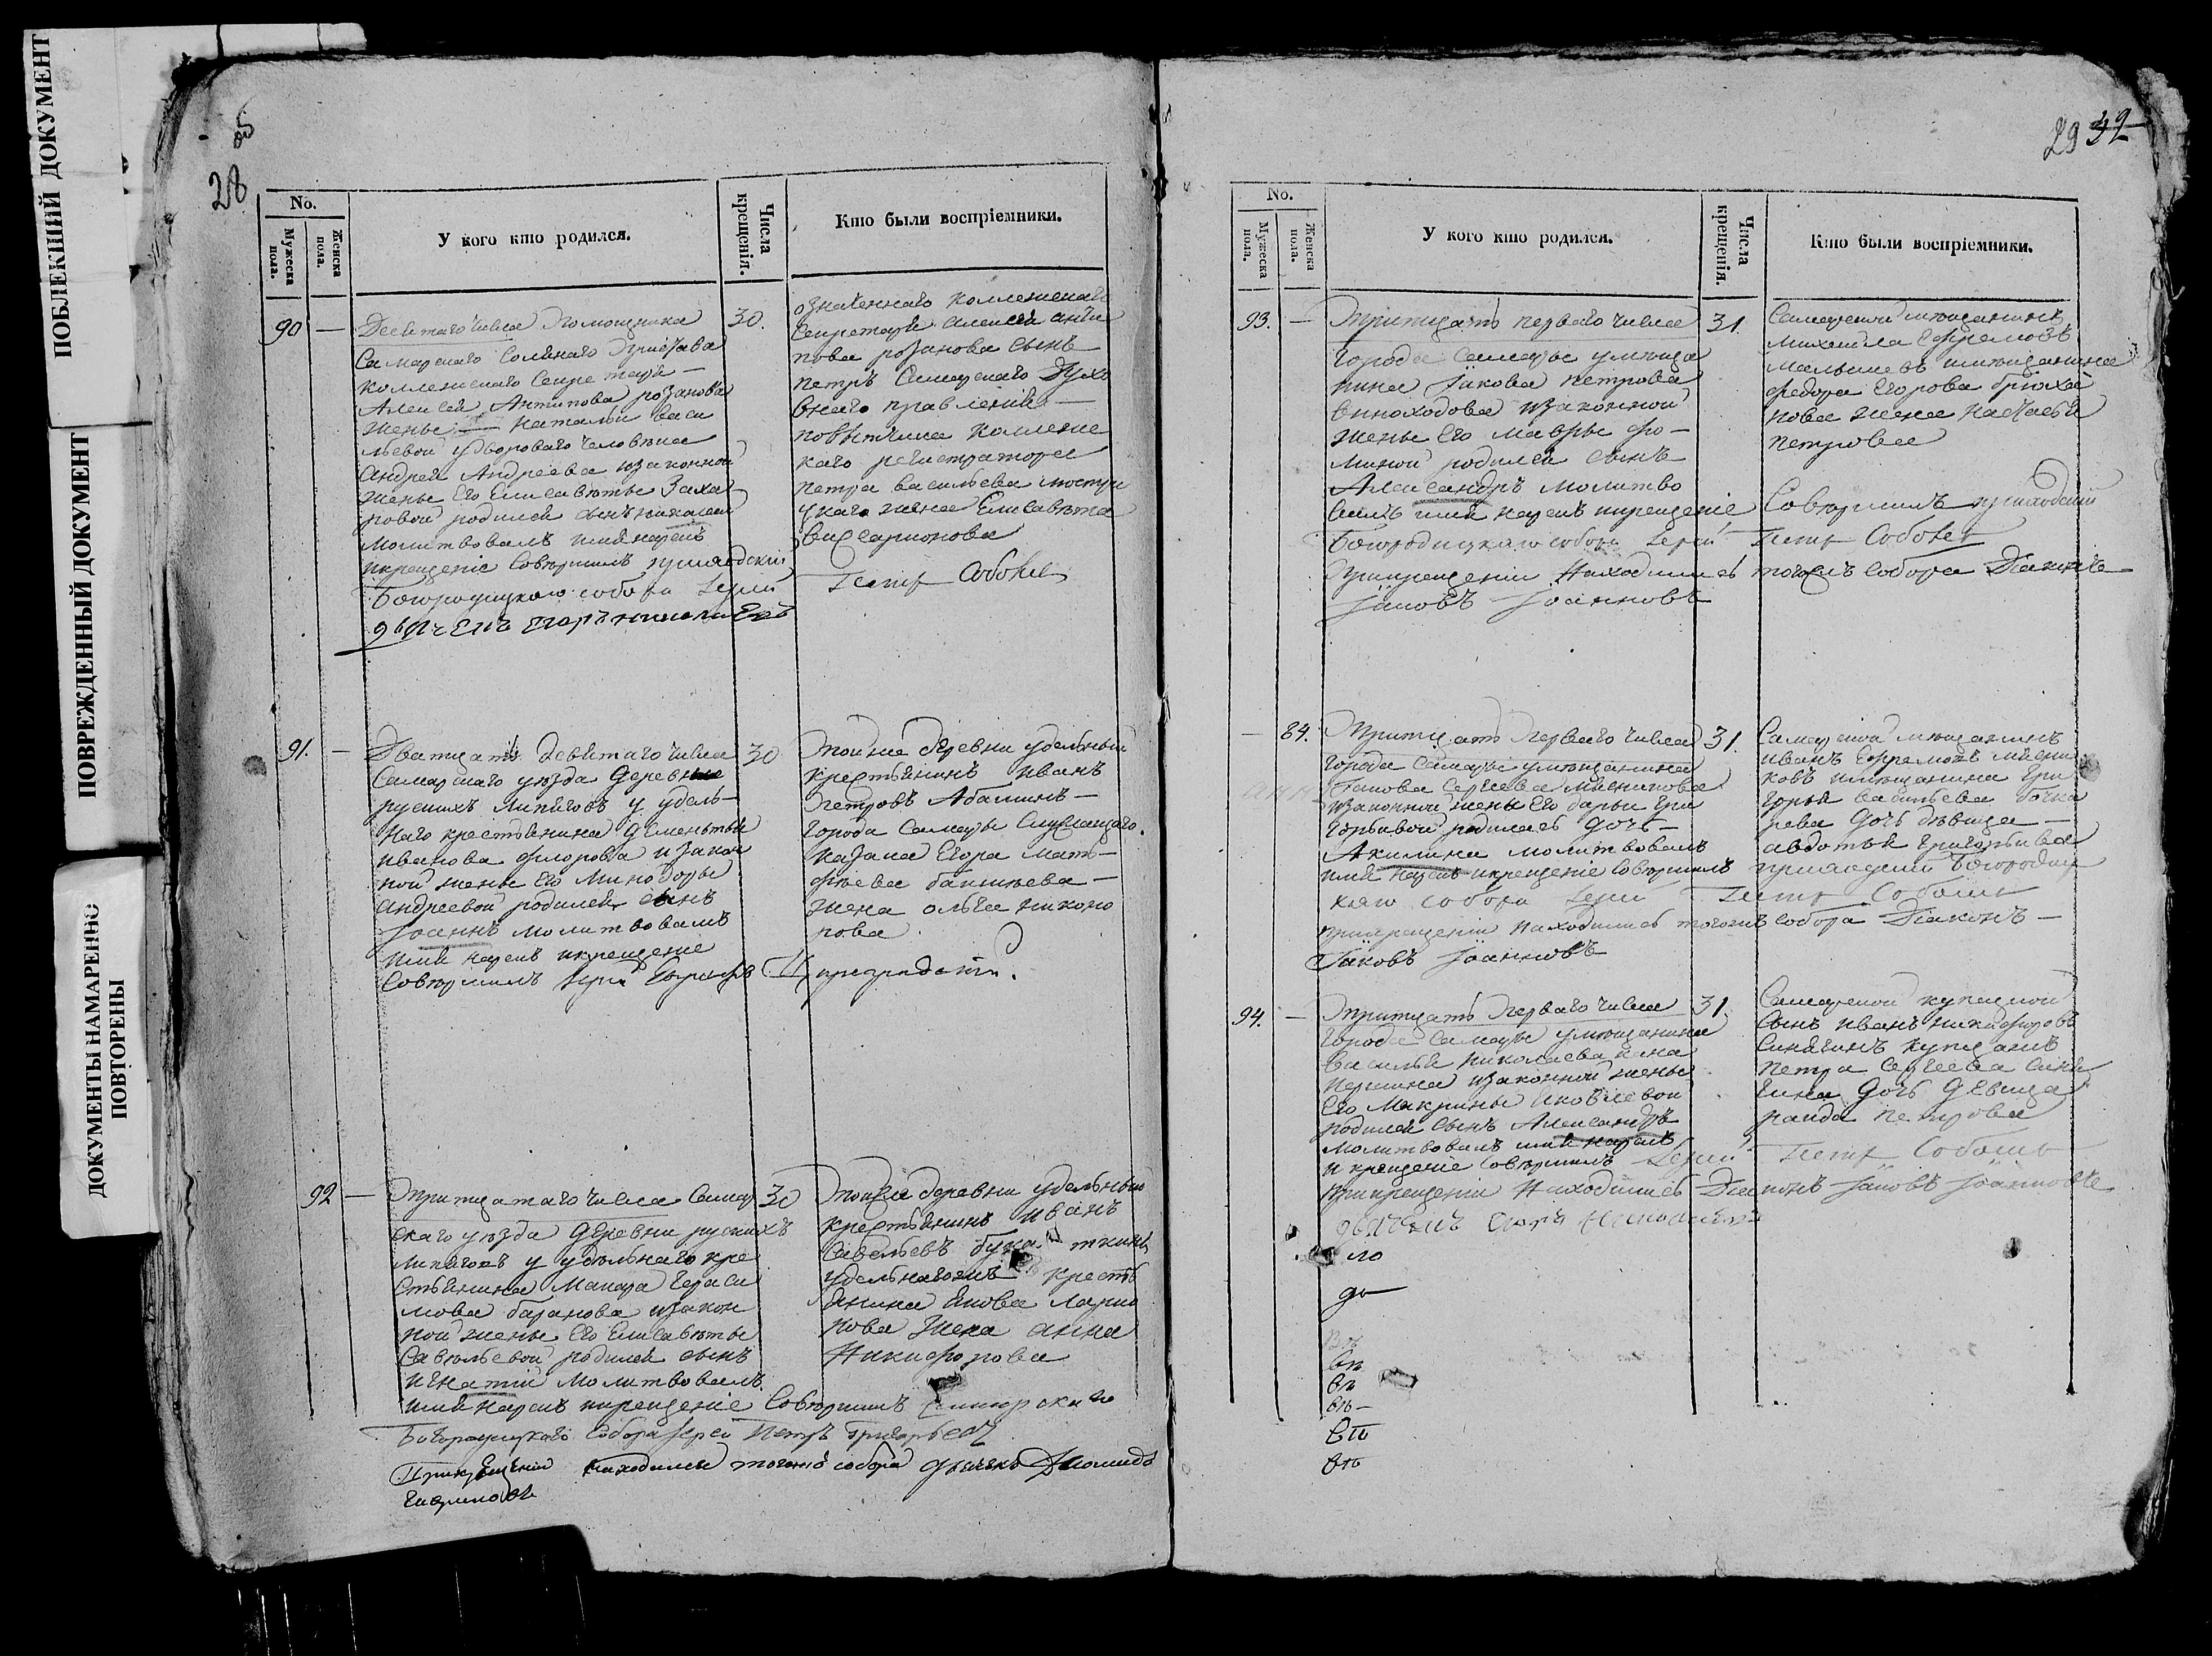 ПОБЛЕКШИЙ ДОКУМЕНТ
ПОВРЕЖДЕННЫЙ ДОКУМЕНТ
ДОКУМЕНТЫ НАМАРЕННО
ПОВТОРЕНЫ
28
No.
Мужеска пола.
Женска пола.
У кого кто родился.
Числа крещенія.
Кто были воспріемники.
90 —
числа помощника
Самарскаго Солянаго
коллежскаго Секретаря —
Алексея Антипова розанова
жены Натальи васи
льевой удвороваго человека
Андрея Андреева изаконной
жены Его Елисаветы Заха
ровой родился сынъ николай
молитвовалъ имя нарекъ
икрещеніе Совершилъ приходскій
Богородицкаго собора Iерей
30.
означеннаго коллежскаго
Секретаря Алексея анти
пова розанова сынъ
петръ Самарскаго Духо
внаго правленія —
повытчика коллежс
каго регистратора
петра васильева мостри
цкаго жена Елисавета
Висарионова
91. —
Дватцать девятаго числа
Самарскаго уезда деревни
руских липяговъ у удель—
наго крестьянина деменьтья
иванова флорова изакон
ной жены его Минодоры
андреевой родился сынъ
Iоаннъ молитвовалъ
имя нарекъ икрещение
Совершилъ Iерей
30
тойже деревни удельный
крестьянинъ иванъ
петровъ Абашинъ —
города Самары Служащаго
казака Егора мать—
феева —
жена ольга никоно
рова
92 —
тритцатаго числа Самар
скаго уезда деревни рускихъ
липяговъ у удельнаго кре
стьянина Макара Гераси
мова баранова изакон
ной жены его Елисаветы
Савельевой родился сынъ
игнатий молитвовалъ
имя нарекъ икрещеніе Совершилъ
Богородицкаго Собора Iерей Петръ Григорьевъ
Прикрещеніи находился тогожъ собора дьячекъ
Гавриловъ
30
тойже деревни удельный
крестьянинъ иванъ
Савельевъ
удельнагожъ кресть
янина Якова Ларио
нова жена анна
Никифорова
29
No.
Мужеска пола.
Женска пола.
У кого кто родился.
Числа крещенія.
Кто были воспріемники.
93. —
тритцать перваго числа
города Самары умеща
нина Iакова петрова
иноходова изаконной
жены Его мавры фо—
миной родился сынъ
Александръ молитво
валъ имя нарекъ икрещеніе Совершилъ приходскій
Богородицкаго собора Iерей
Прикрещеніи Находился тогожъ Собора Діаконъ
Iаковъ Iоанновъ
31.
Самарской мещанинъ
михаила Ефремовъ
малышевъ имещанина
федора Егорова брюха
нова жена настасья
петрова
— 84.
Тритцать перваго числа
города Самары умещанина
Iакова Сергеева мясникова
изаконной жены Его дарьи Гри
горьивой родилась дочь —
Акилина молитвовалъ
имя нарекъ икрещеніе Совершилъ приходский Богородиц
каго собора Iерей
прикрещеніи находился тогожъ собора Діаконъ —
Iаковъ Iоанновъ
31.
Самарской мещанинъ
иванъ Ефремовъ мясни
ковъ имещанина Гри
горья васильева бочка
рева дочь девица —
авдотья Григорьива
94. —
тритцать перваго числа
города Самары умещанина
василья николаева
изаконной жены
Его Макрины Яковлевой
родился сынъ Александръ
молитвовалъ имя нарекъ
и крещеніе совершилъ Iерей
Прикрещеніи Находился Діаконъ Iаковъ Iоанновъ
31.
Самарской купецкой
Сынъ иванъ никифоровъ
Синягинъ купца
Петра Сергеева Синя
гина дочь девица
петрова
ло
до
въ
въ
въ
въ—
въ
въ